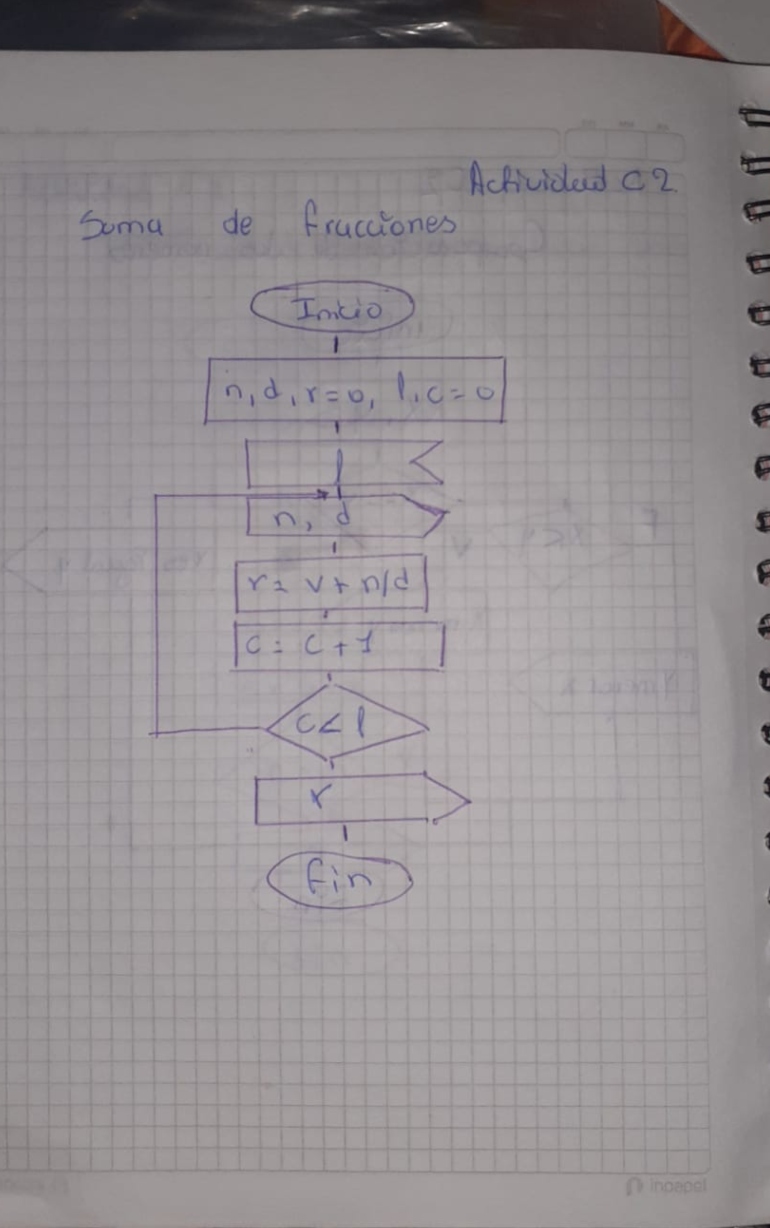 Actividad C2
Suma de fracciones
Inicio
n, d, r=0, l, c=0
l
n, d
r= v+ n/d
c= c+1
c<l
r
fin
inpapel